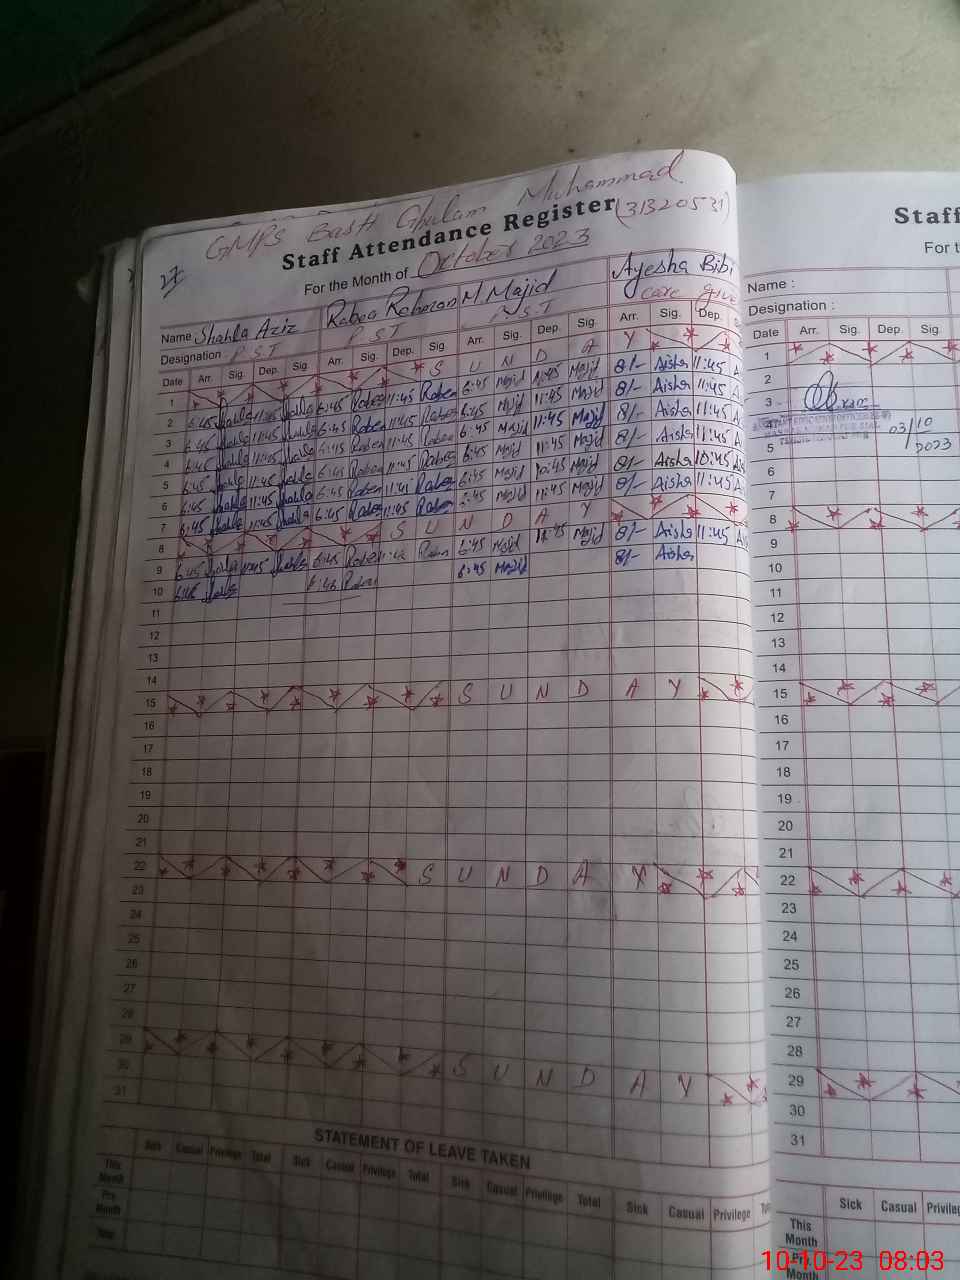 GMPS Basti Ghulam Muhammad
Staff Attendance Register (31320531)
For the Month of October 2023
Name Shahla Aziz Rabea M Majid Ayesha Bibi
Designation P.S.T P.S.T P.S.T Care give
Date Arr. Sig. Dep. Sig. Arr. Sig. Dep. Sig. Arr. Sig. Dep. Sig. Arr. Sig. Dep.
1 S U N D A Y
2 6:45 11:45 6:45 Rabea 11:45 Rabea 6:45 Majid 11:45 Majid 8/- Aisha 11:45
3 6:45 11:45 6:45 Rabea 11:45 Rabea 6:45 Majid 11:45 Majid 8/- Aisha 11:45
4 6:45 11:45 6:45 Rabea 11:45 Rabea 6:45 Majid 11:45 Majid 8/- Aisha 11:45
5 6:45 11:45 6:45 Rabea 11:45 Rabea 6:45 Majid 11:45 Majid 8/- Aisha 11:45
6 6:45 11:45 6:45 Rabea Rabea 6:45 Majid 10:45 Majid 8/- Aisha 10:45
7 6:45 11:45 6:45 Rabea 11:45 Rabea 6:45 Majid 11:45 Majid 8/- Aisha 11:45
8 S U N D A Y
9 6:45 6:45 Rabea 6:45 Majid 11:45 Majid 8/- Aisha 11:45
10 6:45 6:45 Rabea 6:45 Majid 8/- Aisha
11
12
13
14
15 S U N D A Y
16
17
18
19
20
21
22 S U N D A Y
23
24
25
26
27
28
29 S U N D A Y
30
31
STATEMENT OF LEAVE TAKEN
Sick Casual Privilege Total Sick Casual Privilege Total Sick Casual Privilege Total Sick Casual Privilege
This Month
Pre Month
Staff
For t
Name :
Designation :
Date Arr. Sig. Dep. Sig.
1
2
3
03/10
5 2023
6
7
8
9
10
11
12
13
14
15
16
17
18
19
20
21
22
23
24
25
26
27
28
29
30
31
Sick Casual Privileg
This Month
Pre Month
10-10-23 08:03